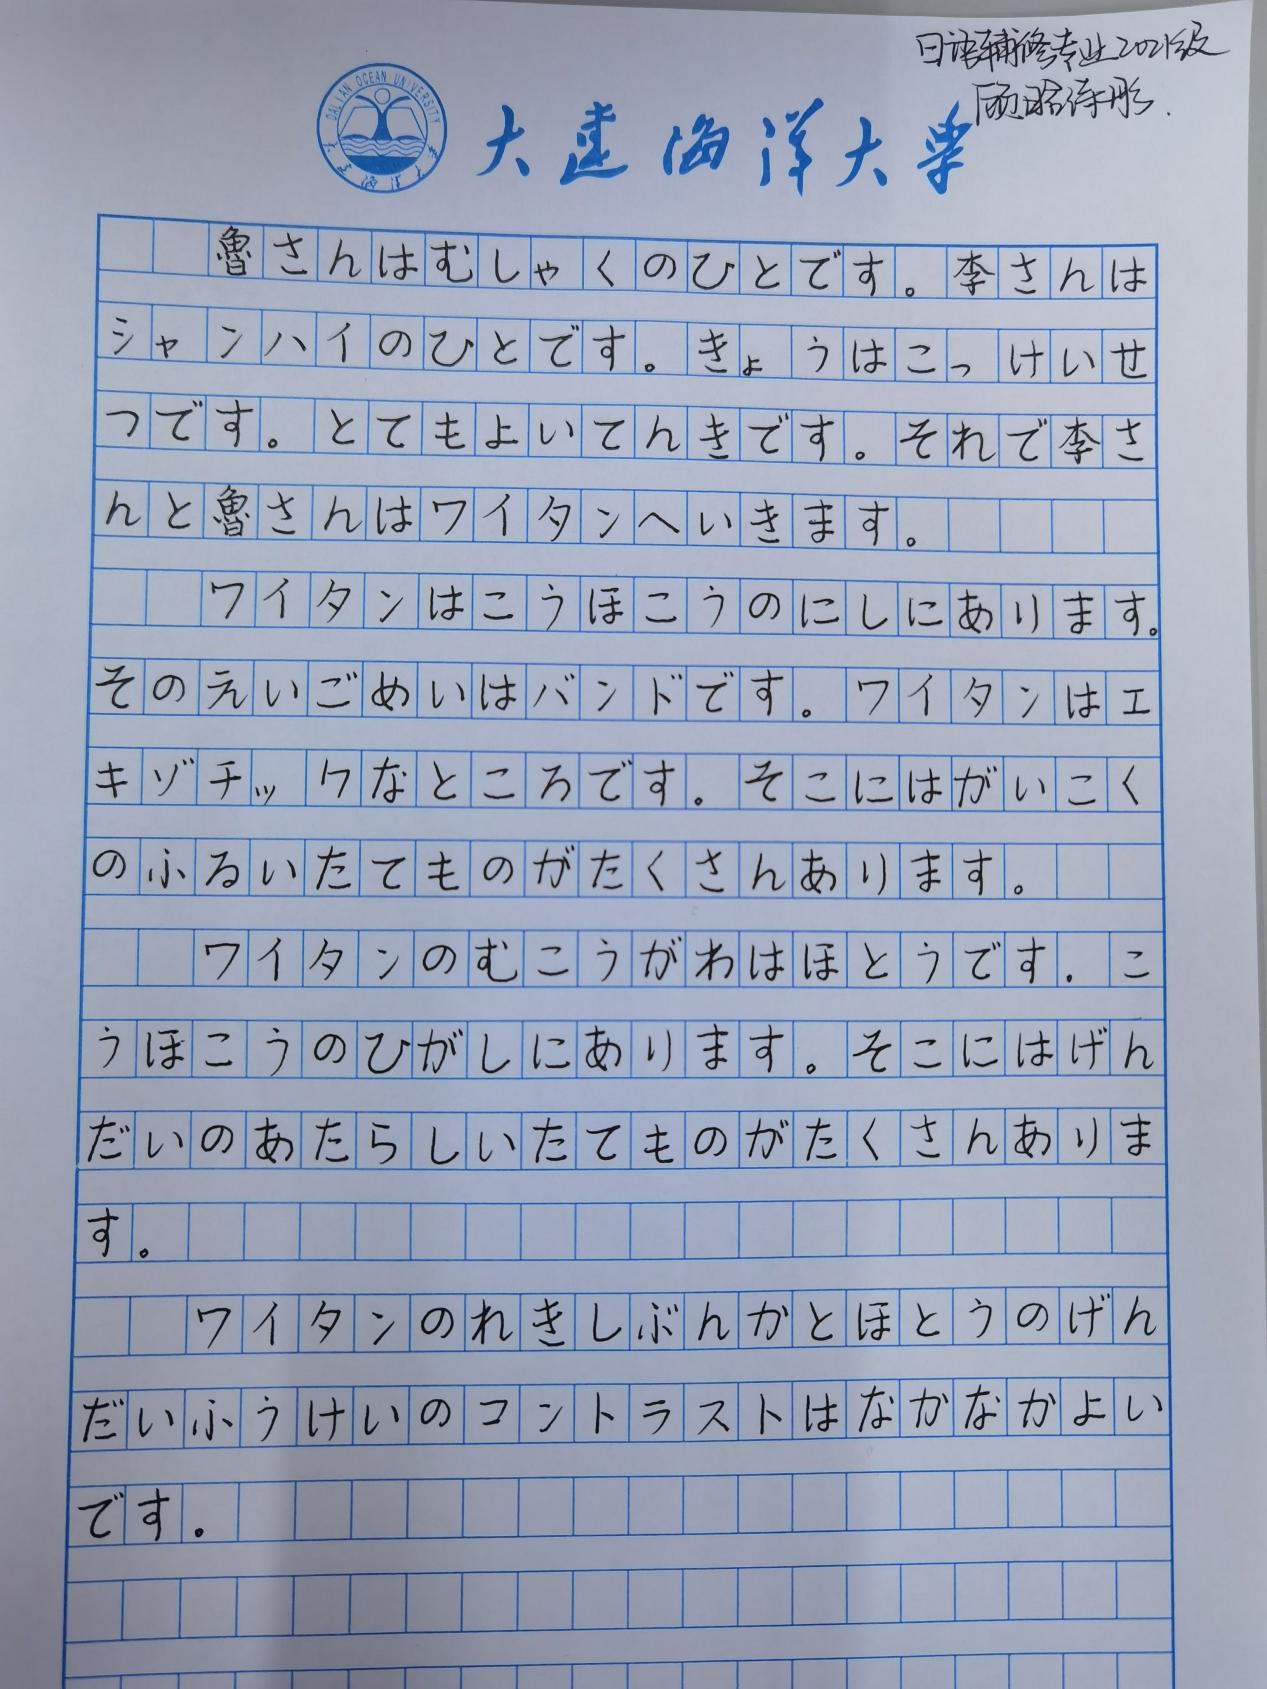 日语辅修专业2021级
DALIAN OCEAN UNIVERSITY
大连海洋大学
大连海洋大学
魯さんはむしゃくのひとです。李さんは
シャンハイのひとです。きょうはこっけいせ
つです。とてもよいてんきです。それで李さ
んと魯さんはワイタンへいきます。
ワイタンはこうほこうのにしにあります。
そのえいごめいはバンドです。ワイタンはエ
キゾチックなところです。そこにはがいこく
のふるいたてものがたくさんあります。
ワイタンのむこうがわはほとうです.こ
うほこうのひがしにあります。そこにはげん
だいのあたらしいたてものがたくさんありま
す。
ワイタンのれきしぶんかとほとうのげん
だいふうけいのコントラストはなかなかよい
です。